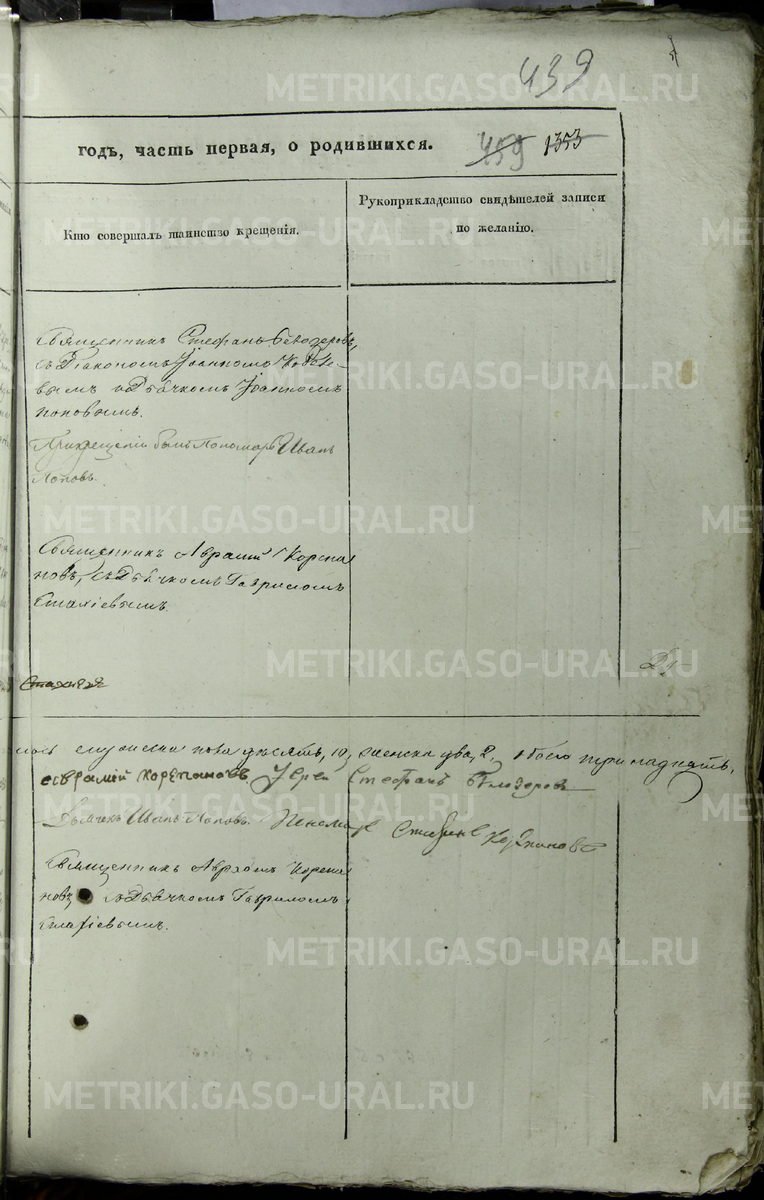 439
годъ, часть первая, о родившихся. 459 1353
Кто совершалъ таинство крещенія.
Рукоприкладство свидѣтелей записи
по желанію.
Священникъ Стефанъ Белозеровъ,
съ Діакономъ Іоанномъ
вымъ и Дьячкомъ Іоанномъ
Поповымъ.
При крещеніи былъ Пономарь Иванъ
Поповъ.
Священникъ Аврамій Корепа
новъ, съ Дьячкомъ Гавриломъ
Стахіевымъ.
Стахиевъ
мужеска пола десять, 10, женска два, 2, обоего
Аврамій Корепановъ Іерей Стефанъ Белозеровъ
Дьячекъ Иванъ Поповъ. Пономарь Корепановъ
Священникъ Аврамъ Корепа
новъ съ Дьячкомъ Гавриломъ
Стахіевымъ.
METRIKI.GASO-URAL.RU